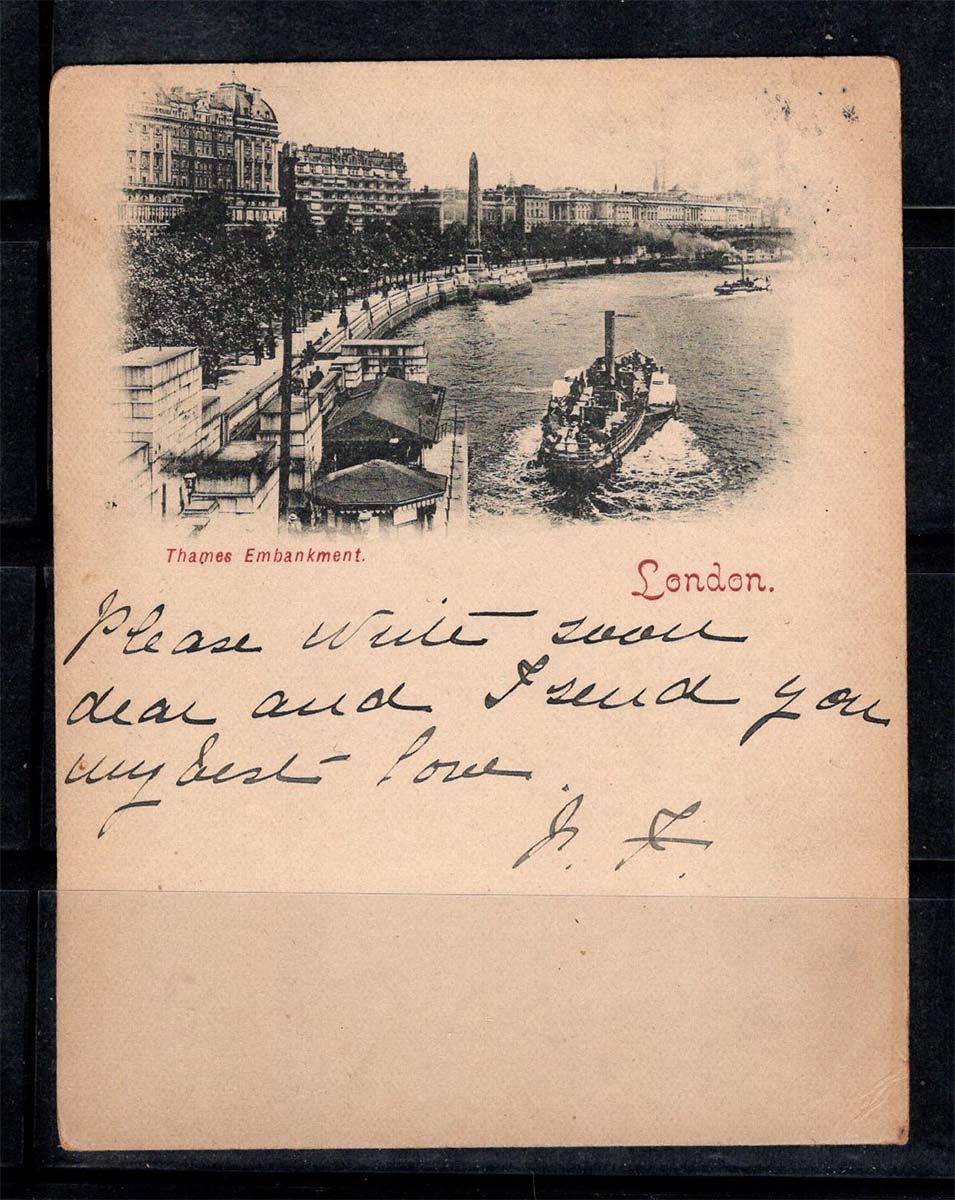 Thames Embankment.
London.
Please write soon
dear and I send you
my best love
J. F.